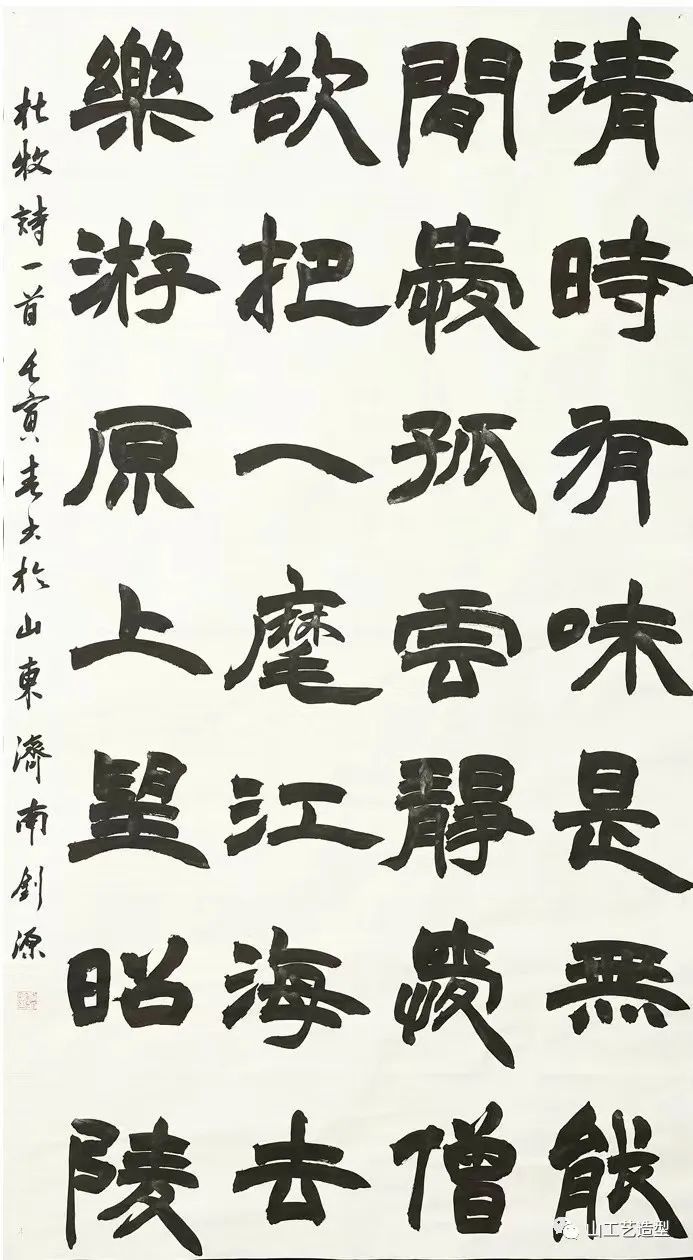 清時有味是無能
間愛孤雲靜愛僧
欲把一麾江海去
樂游原上望昭陵
杜牧詩一首 壬寅春於山東濟南劉源
山工艺造型